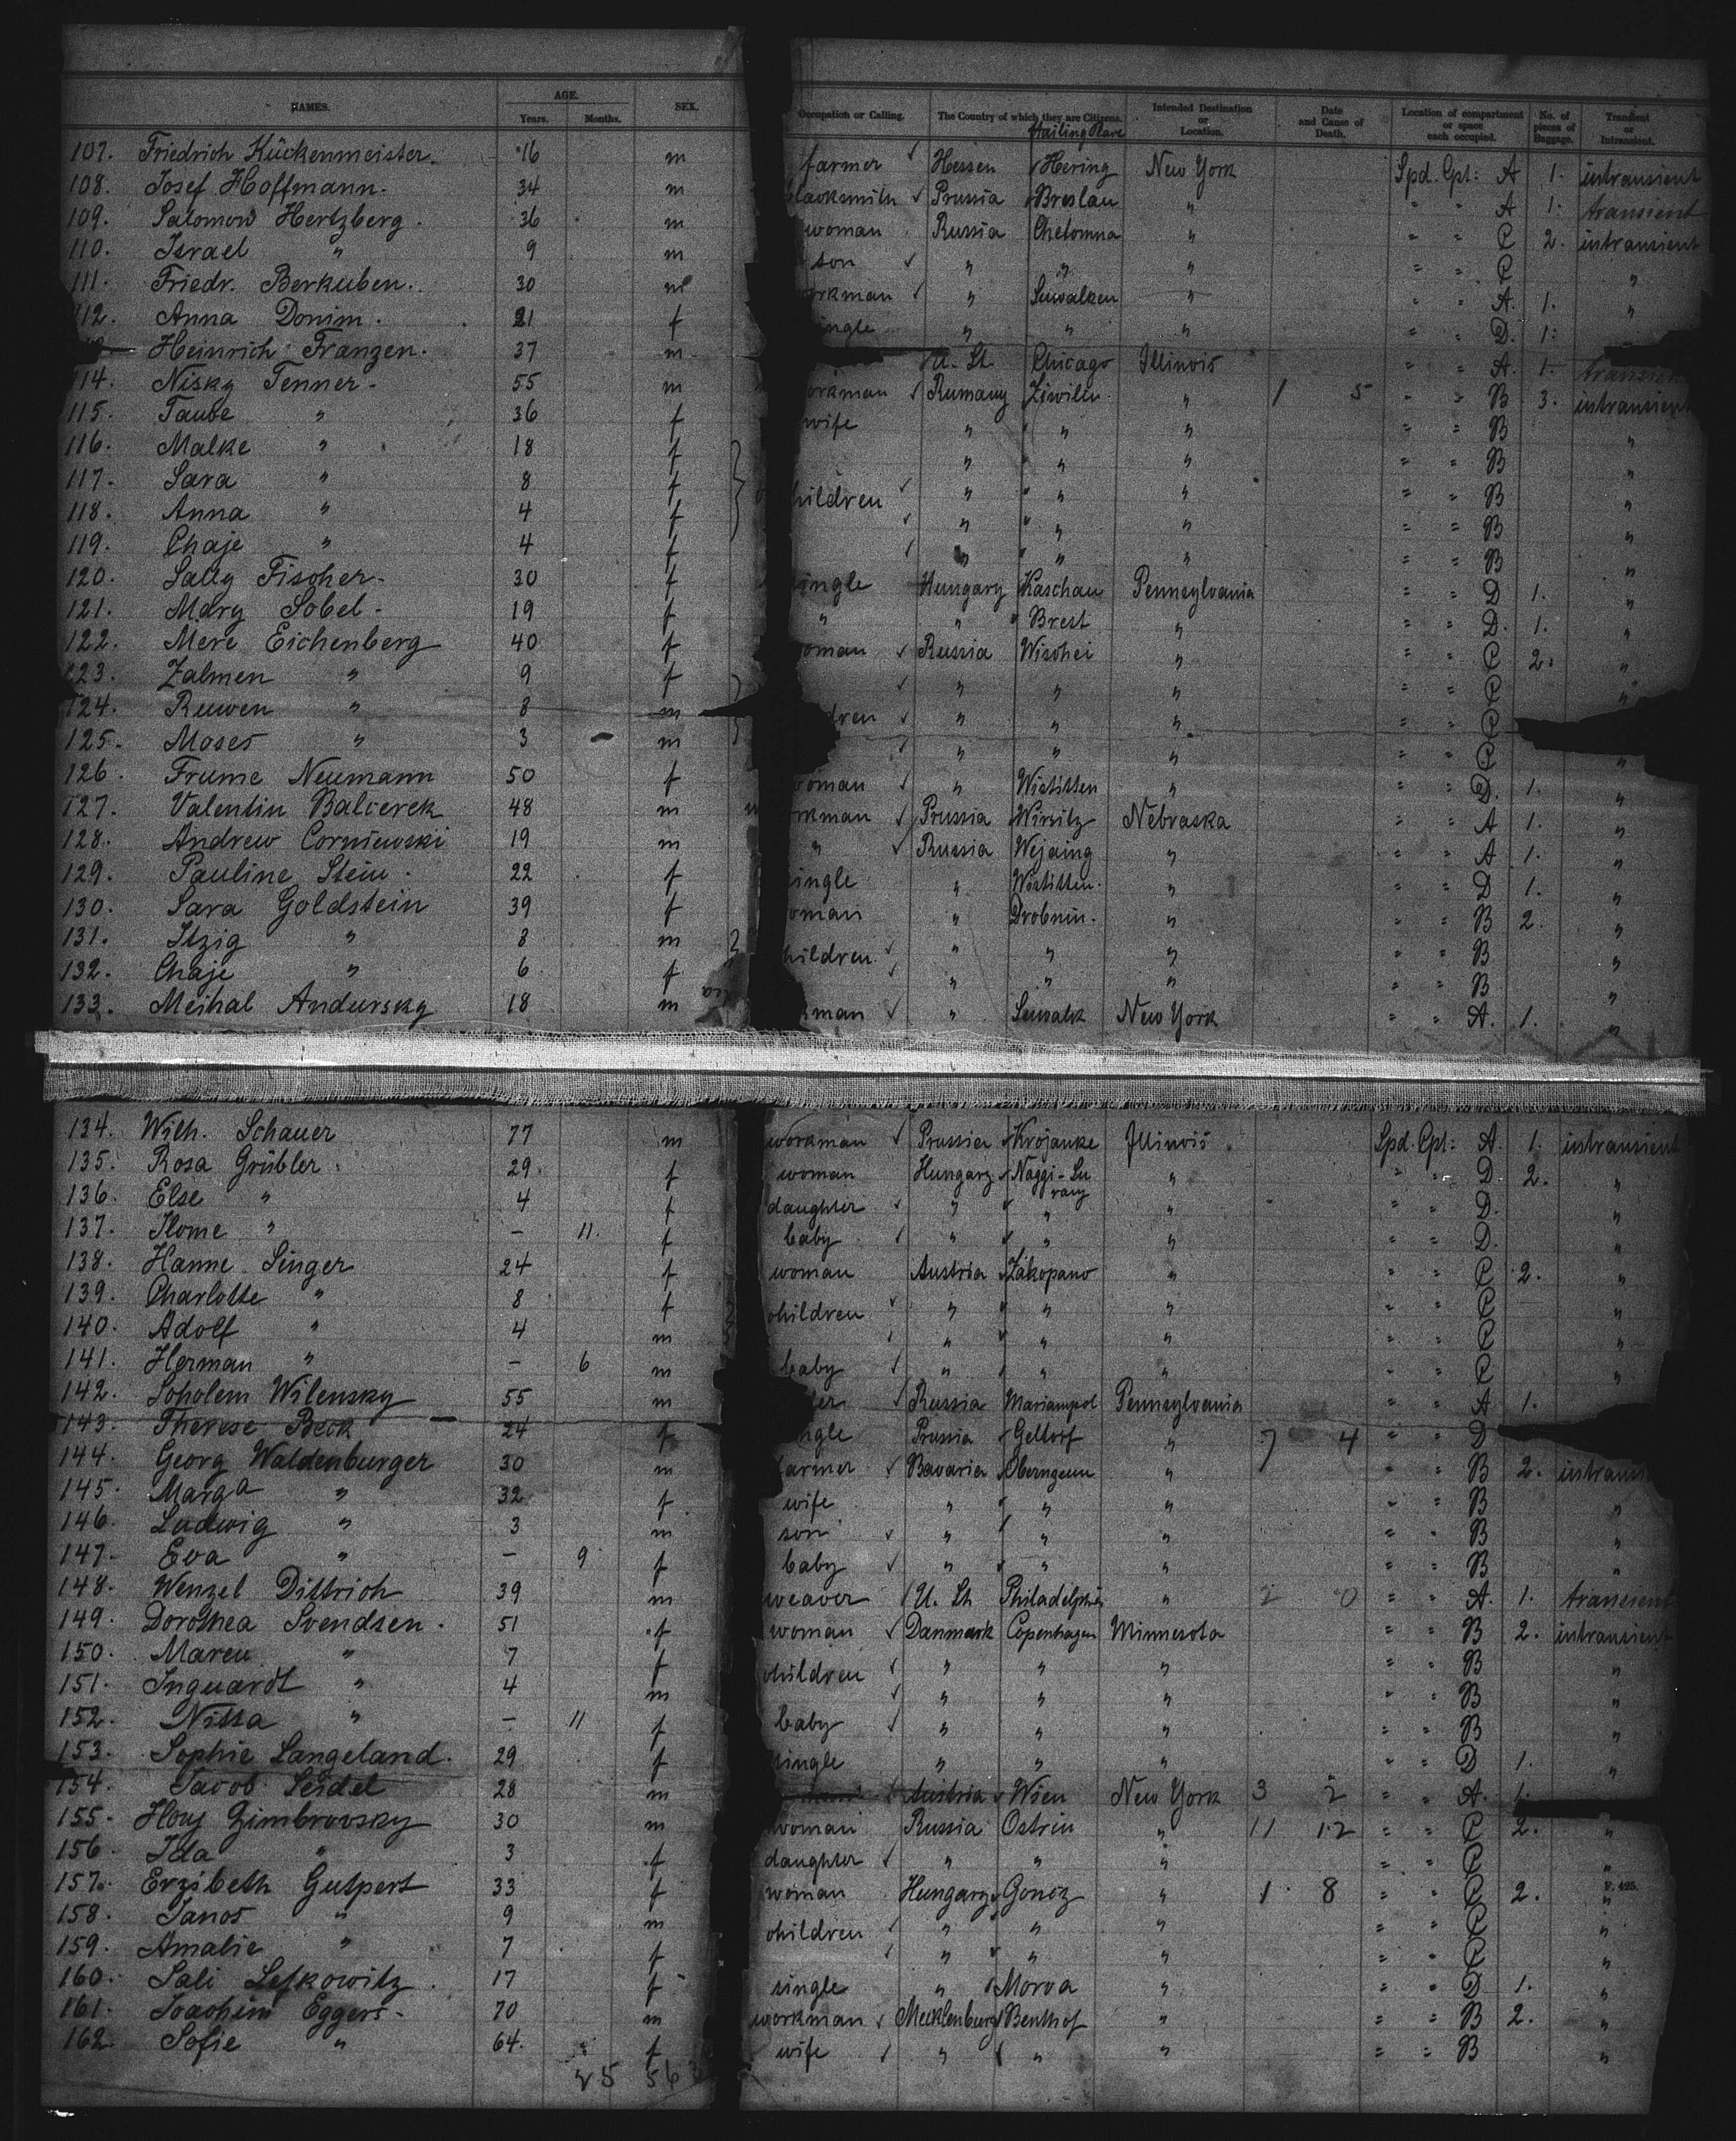 NAMES. AGE. SEX. Occupation or Calling. The Country of which they are Citizens. Intended Destination or Location. Date and Cause of Death. Location of compartment or space each occupied. No. of pieces of Baggage. Transient or Intransient.
Years. Months. Hailing Place
107. Friedrich Kückenmeister. 16 m farmer Hessen Hering New York Spd. Cpt: A 1. intransient
108. Josef Hoffmann. 34 m blacksmith Prussia Breslau " " " A 1. transient
109. Salomow Hertzberg. 36 m woman Russia Chelomna " " " C 2. intransient
110. Israel " 9 m son " " " " " C "
111. Friedr. Berkuben. 30 m workman " Suwalken " " " A. 1. "
112. Anna Donim. 21 f single " " " " " D. 1. "
Heinrich Franzen. 37 m U. St. Chicago Illinois " " A. 1. transient
114. Nisky Tenner. 55 m workman Rumany Ziwilln " 1 5 " " B 3. intransient
115. Taube " 36 f wife " " " " " B "
116. Malke " 18 f " " " " " B "
117. Sara " 8 f children " " " " " B "
118. Anna " 4 f " " " " " B "
119. Chaje " 4 f " " " " " B "
120. Sally Fischer. 30 f single Hungary Kaschau Pennsylvania " " D 1. "
121. Mary Sobel. 19 f " " Brest " " " D. 1. "
122. Mere Eichenberg 40 f woman Russia Wischei " " " C 2. "
123. Zalmen " 9 f " " " " " C "
124. Ruwen " 8 m children " " " " " C
125. Moses " 3 m " " " " " C "
126. Frume Neumann 50 f woman " Wistitten " " " D. 1. "
127. Valentin Balcerek 48 m workman Prussia Wirsitz Nebraska " " A 1. "
128. Andrew Corniewski 19 m " Russia Wejaing " " " A 1. "
129. Pauline Stein. 22 f single " Wistitten. " " " D 1. "
130. Sara Goldstein 39 f woman " Drobnin. " " " B 2. "
131. Itzig " 8 m children " " " " " B "
132. Chaje " 6 f " " " " " B "
133. Meihal Andursky 18 m workman " Suwalk New York " " A. 1. "
134. Wilh. Schauer 77 m workman Prussia Krojanke Illinois Spd. Cpt: A. 1. intransient
135. Rosa Grübler. 29. f woman Hungary Naggi-Surany " " " D. 2. "
136. Else " 4 f daughter " " " " " D. "
137. Ilome " - 11. f baby " " " " " D. "
138. Hanne Singer 24 f woman Austria Zakopano " " " C 2. "
139. Charlotte " 8 f children " " " " " C "
140. Adolf " 4 m " " " " " C "
141. Herman " - 6 m baby " " " " " C "
142. Scholem Wilensky 55 m Russia Mariampol Pennsylvania " " A 1.
143. Therese Beck 24 f single Prussia Geltorf " 7 4 " " D
144. Georg Waldenburger 30 m farmer Bavaria Oberngeun " " " B 2. intransient
145. Marga " 32 f wife " " " " " B "
146. Ludwig " 3 m son " " " " " B "
147. Eva " - 9 f baby " " " " " B "
148. Wenzel Dittrich 39 m weaver U. St Philadelphia " 2 0 " " A. 1. transient
149. Dorothea Svendsen. 51 f woman Danmark Copenhagen Minnesota " " B 2. intransient
150. Maren " 7 f children " " " " " B "
151. Inguardt " 4 m " " " " " B "
152. Nitta " - 11 f baby " " " " " B "
153. Sophie Langeland. 29 f single " " " " " D 1. "
154. Jacob Seidel 28 m Austria Wien New York 3 2 " " A. 1.
155. Hory Zimbrovsky 30 m woman Russia Ostrin " 11 12 " " C 2. "
156. Ida " 3 f daughter " " " " " C "
157. Erzibeth Gutpert 33 f woman Hungary Goncz " 1 8 " " C 2. "
F. 425.
158. Janos " 9 m children " " " " " C "
159. Amalie " 7 f " " " " " C "
160. Sali Lefkowitz. 17 f single " Morva " " " D 1. "
161. Joachim Eggers. 70 m workman Mecklenburg Benthof " " " B 2. "
162. Sofie " 64. f wife " " " " " B "
25 56